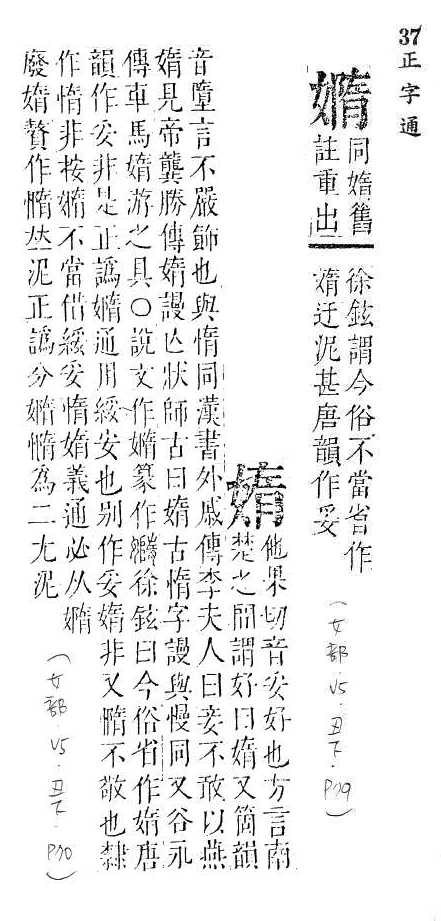 37正字通
嫷
同媠舊
註重出
徐鉉謂今俗不當省作
媠迂泥甚唐韻作妥
(女部.V5.丑下.P99)
媠
他果切音妥好也方言南
楚之閒謂好曰媠又箇韻
音墮言不嚴飾也與惰同漢書外戚傳李夫人曰妾不敢以燕
媠見帝龔勝傳媠謾亾狀師古曰媠古惰字謾與慢同又谷永
傳車馬媠游之具○說文作嫷篆作
徐鉉曰今俗省作媠唐
韻作妥非是正譌嫷通用綏妥也别作妥媠非又憜不敬也隸
作惰非按嫷不當借綏妥惰媠義通必从嫷
廢媠贅作憜竝泥正譌分嫷憜為二尤泥